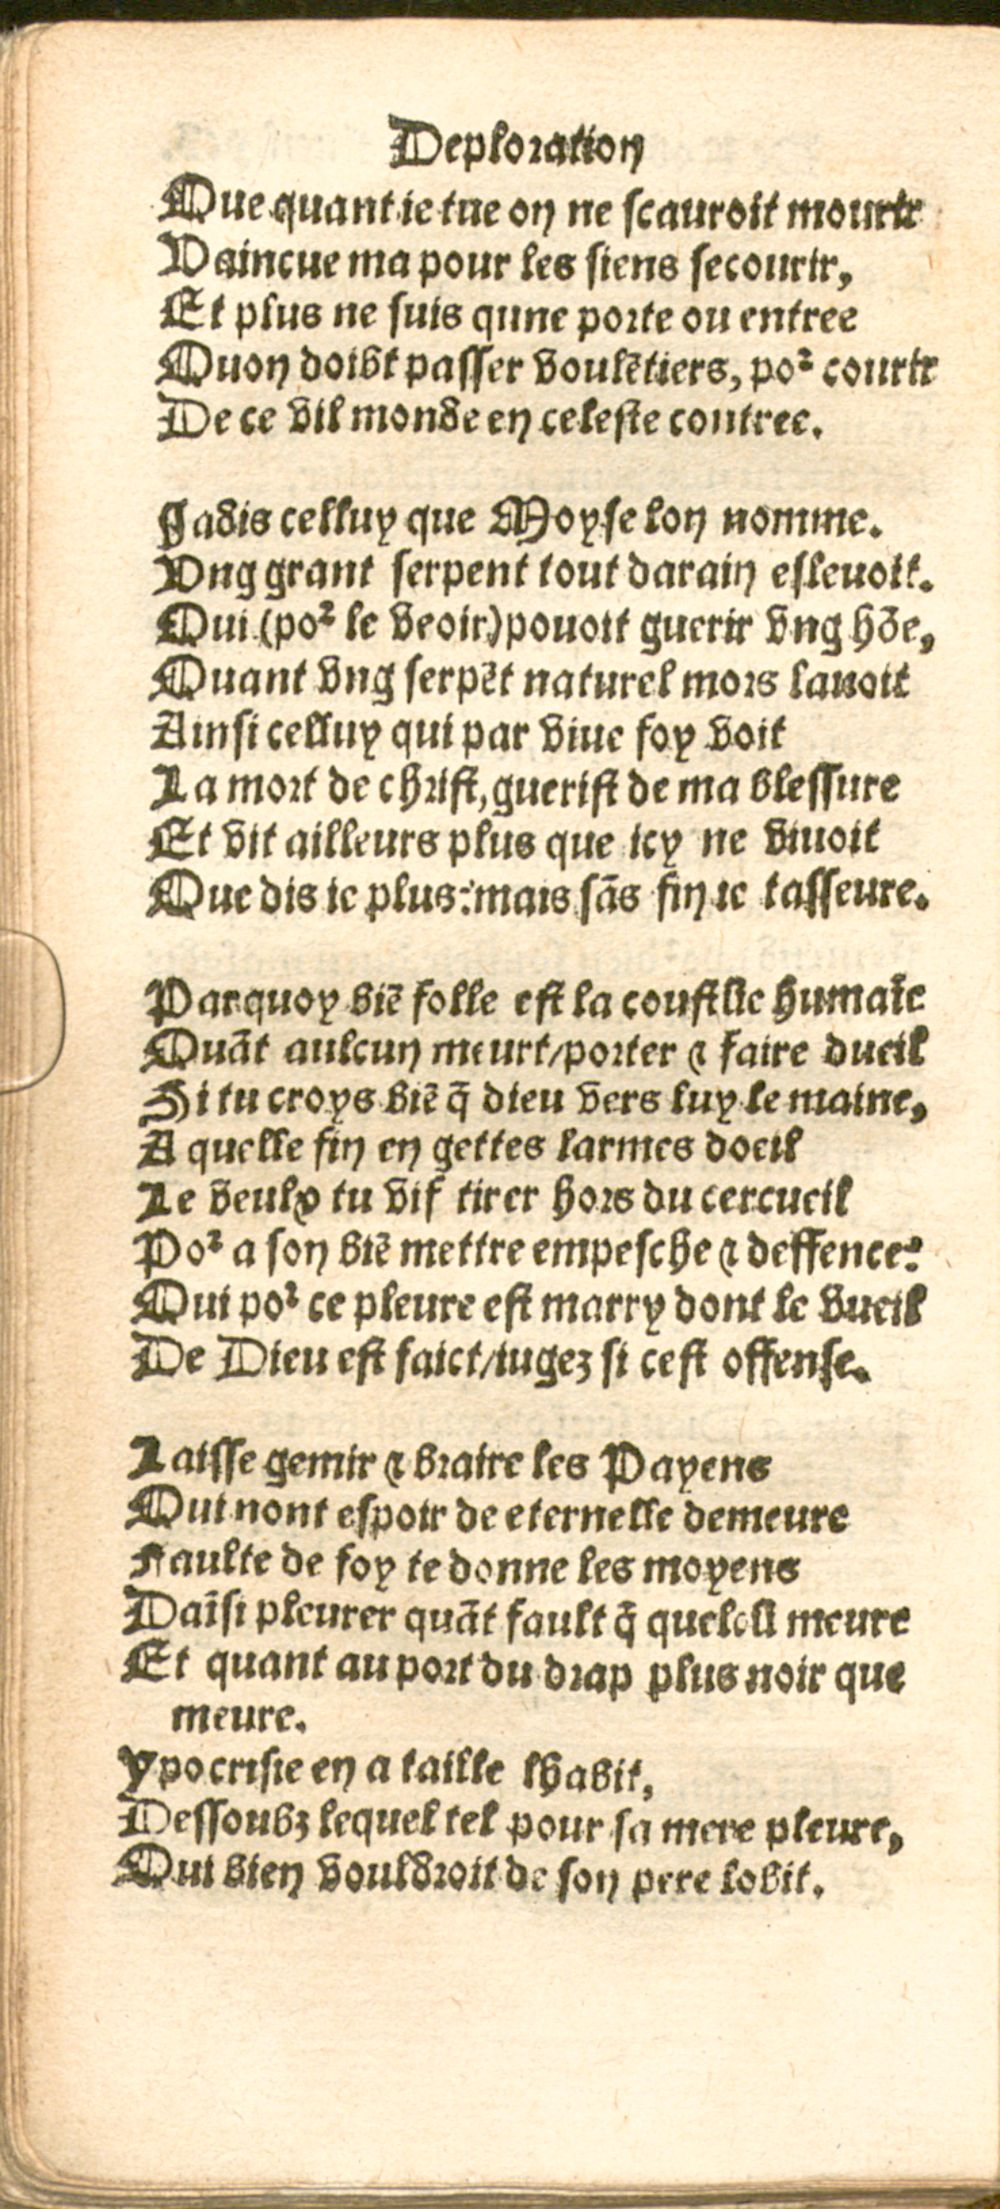 Deploration
Que quant ie tue on ne scauroit mourir
Vaincue ma pour les siens secourir,
Et plus ne suis qune porte ou entree
Quon doibt passer voulẽtiers, poꝰ courir
De ce vil monde en celeste contree.
Jadis celluy que Moyse lon nomme.
Vng grant serpent tout darain esleuoit.
Qui (poꝰ le veoir) pouoit guerir vng hõe,
Quant vng serpẽt naturel mors lauoit
Ainsi celluy qui par viue foy voit
La mort de christ, guerist de ma blessure
Et vit ailleurs plus que icy ne viuoit
Que dis ie plus: mais sãs fin ie tasseure.
Parquoy biẽ folle est la coustũe humaĩe
Quãt aulcun meurt/porter ⁊ faire dueil
Si tu croys biẽ q̃ dieu vers luy le maine,
A quelle fin en gettes larmes doeil
Le veulx tu vif tirer hors du cercueil
Poꝰ a son biẽ mettre empesche ⁊ deffence?
Qui poꝰ ce pleure est marry dont le vueil
De Dieu est faict/iugez si cest offense.
Laisse gemir ⁊ braire les Payens
Qui nont espoir de eternelle demeure
Faulte de foy te donne les moyens
Daĩsi pleurer quãt fault q̃ quelcũ meure
Et quant au port du drap plus noir que
meure.
Ypocrisie en a taille lhabit,
Dessoubz lequel tel pour sa mere pleure,
Qui bien vouldroit de son pere lobit.